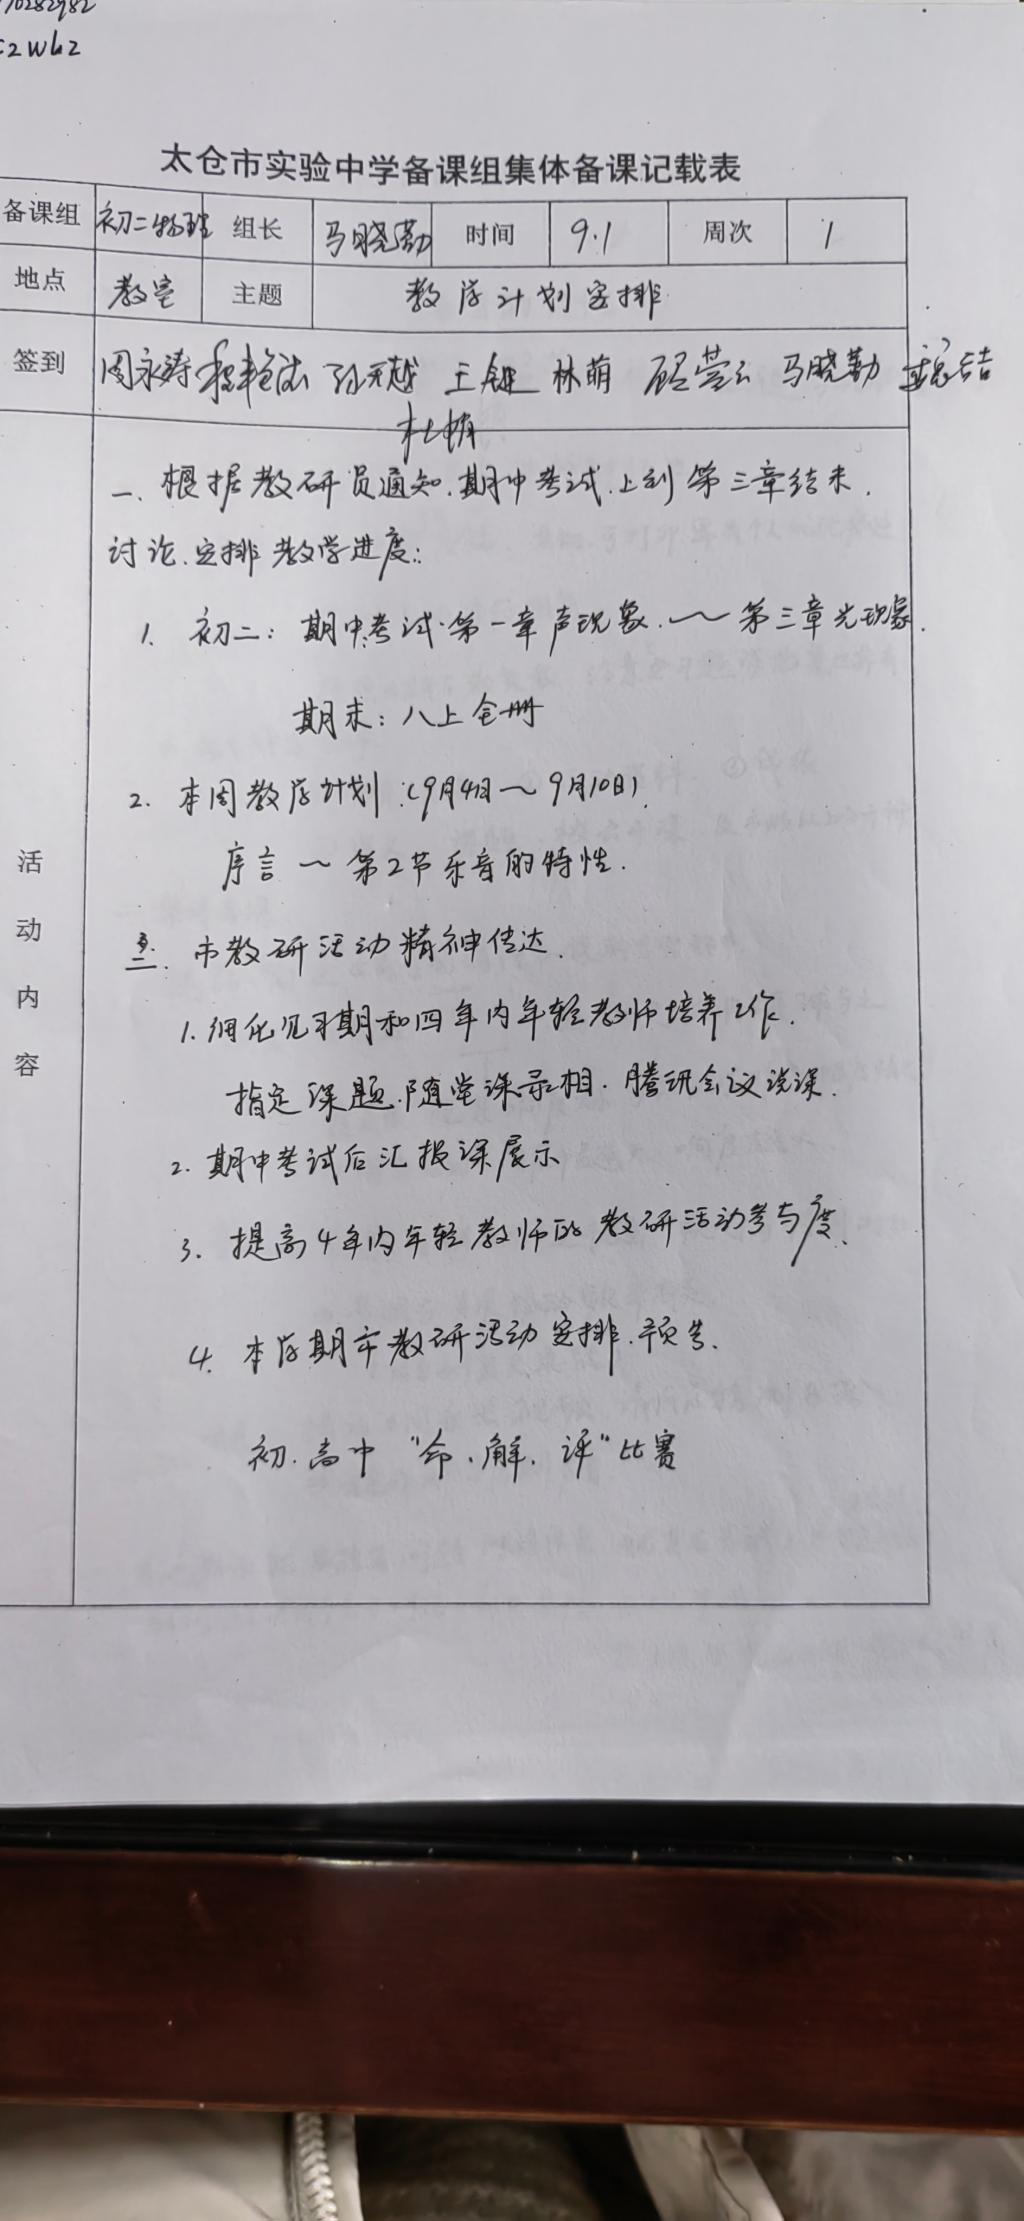 70282982
c2Wh2
太仓市实验中学备课组集体备课记载表
备课组 初二物理 组长 马晓勤 时间 9.1 周次 1
地点 教室 主题 教学计划安排
签到 周永涛 王健 林萌 马晓勤
活动内容
一、根据教研员通知.期中考试.上到第三章结束.
讨论.安排教学进度:
1. 初二: 期中考试.第一章声现象.～第三章光现象.
期末: 八上全册
2. 本周教学计划:(9月4日～9月10日)
序言～第2节乐音的特性.
二. 市教研活动精神传达.
1. 细化见习期和四年内年轻教师培养工作.
指定课题.随堂课录相.腾讯会议说课.
2. 期中考试后汇报课展示
3. 提高4年内年轻教师的教研活动参与度.
4. 本学期市教研活动安排.预告.
初.高中"命、解、评"比赛